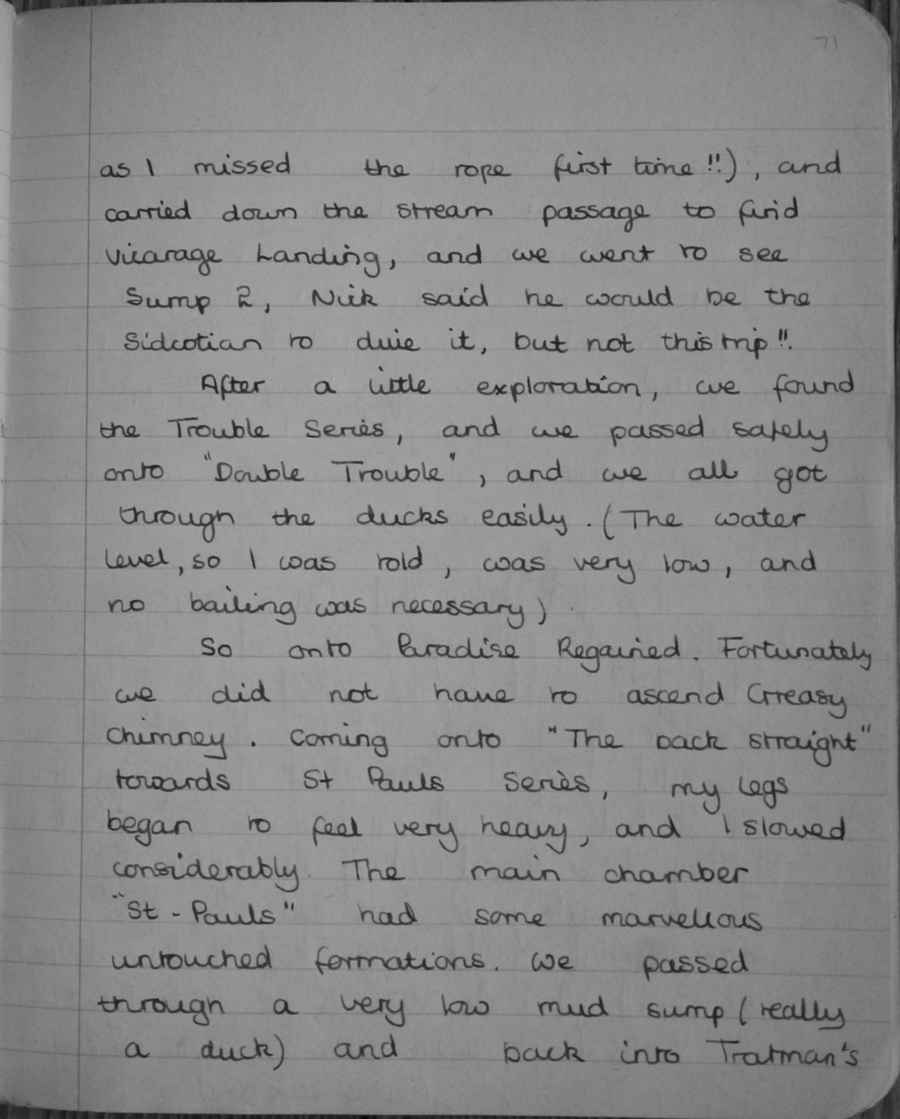 71
as I missed the rope first time!!), and
carried down the stream passage to find
Vicarage Landing, and we went to see
Sump 2, Nick said he would be the
Sidcotian to dive it, but not this trip!!.
After a little exploration, we found
the Trouble Series, and we passed safely
onto "Double Trouble", and we all got
through the ducks easily. (The water
level, so I was told, was very low, and
no bailing was necessary).
So onto Paradise Regained. Fortunately
we did not have to ascend Greasy
Chimney. Coming onto "The back straight"
towards St Pauls Series, my legs
began to feel very heavy, and I slowed
considerably. The main chamber
"St-Pauls" had some marvellous
untouched formations. We passed
through a very low mud sump (really
a duck) and back into Tratman's